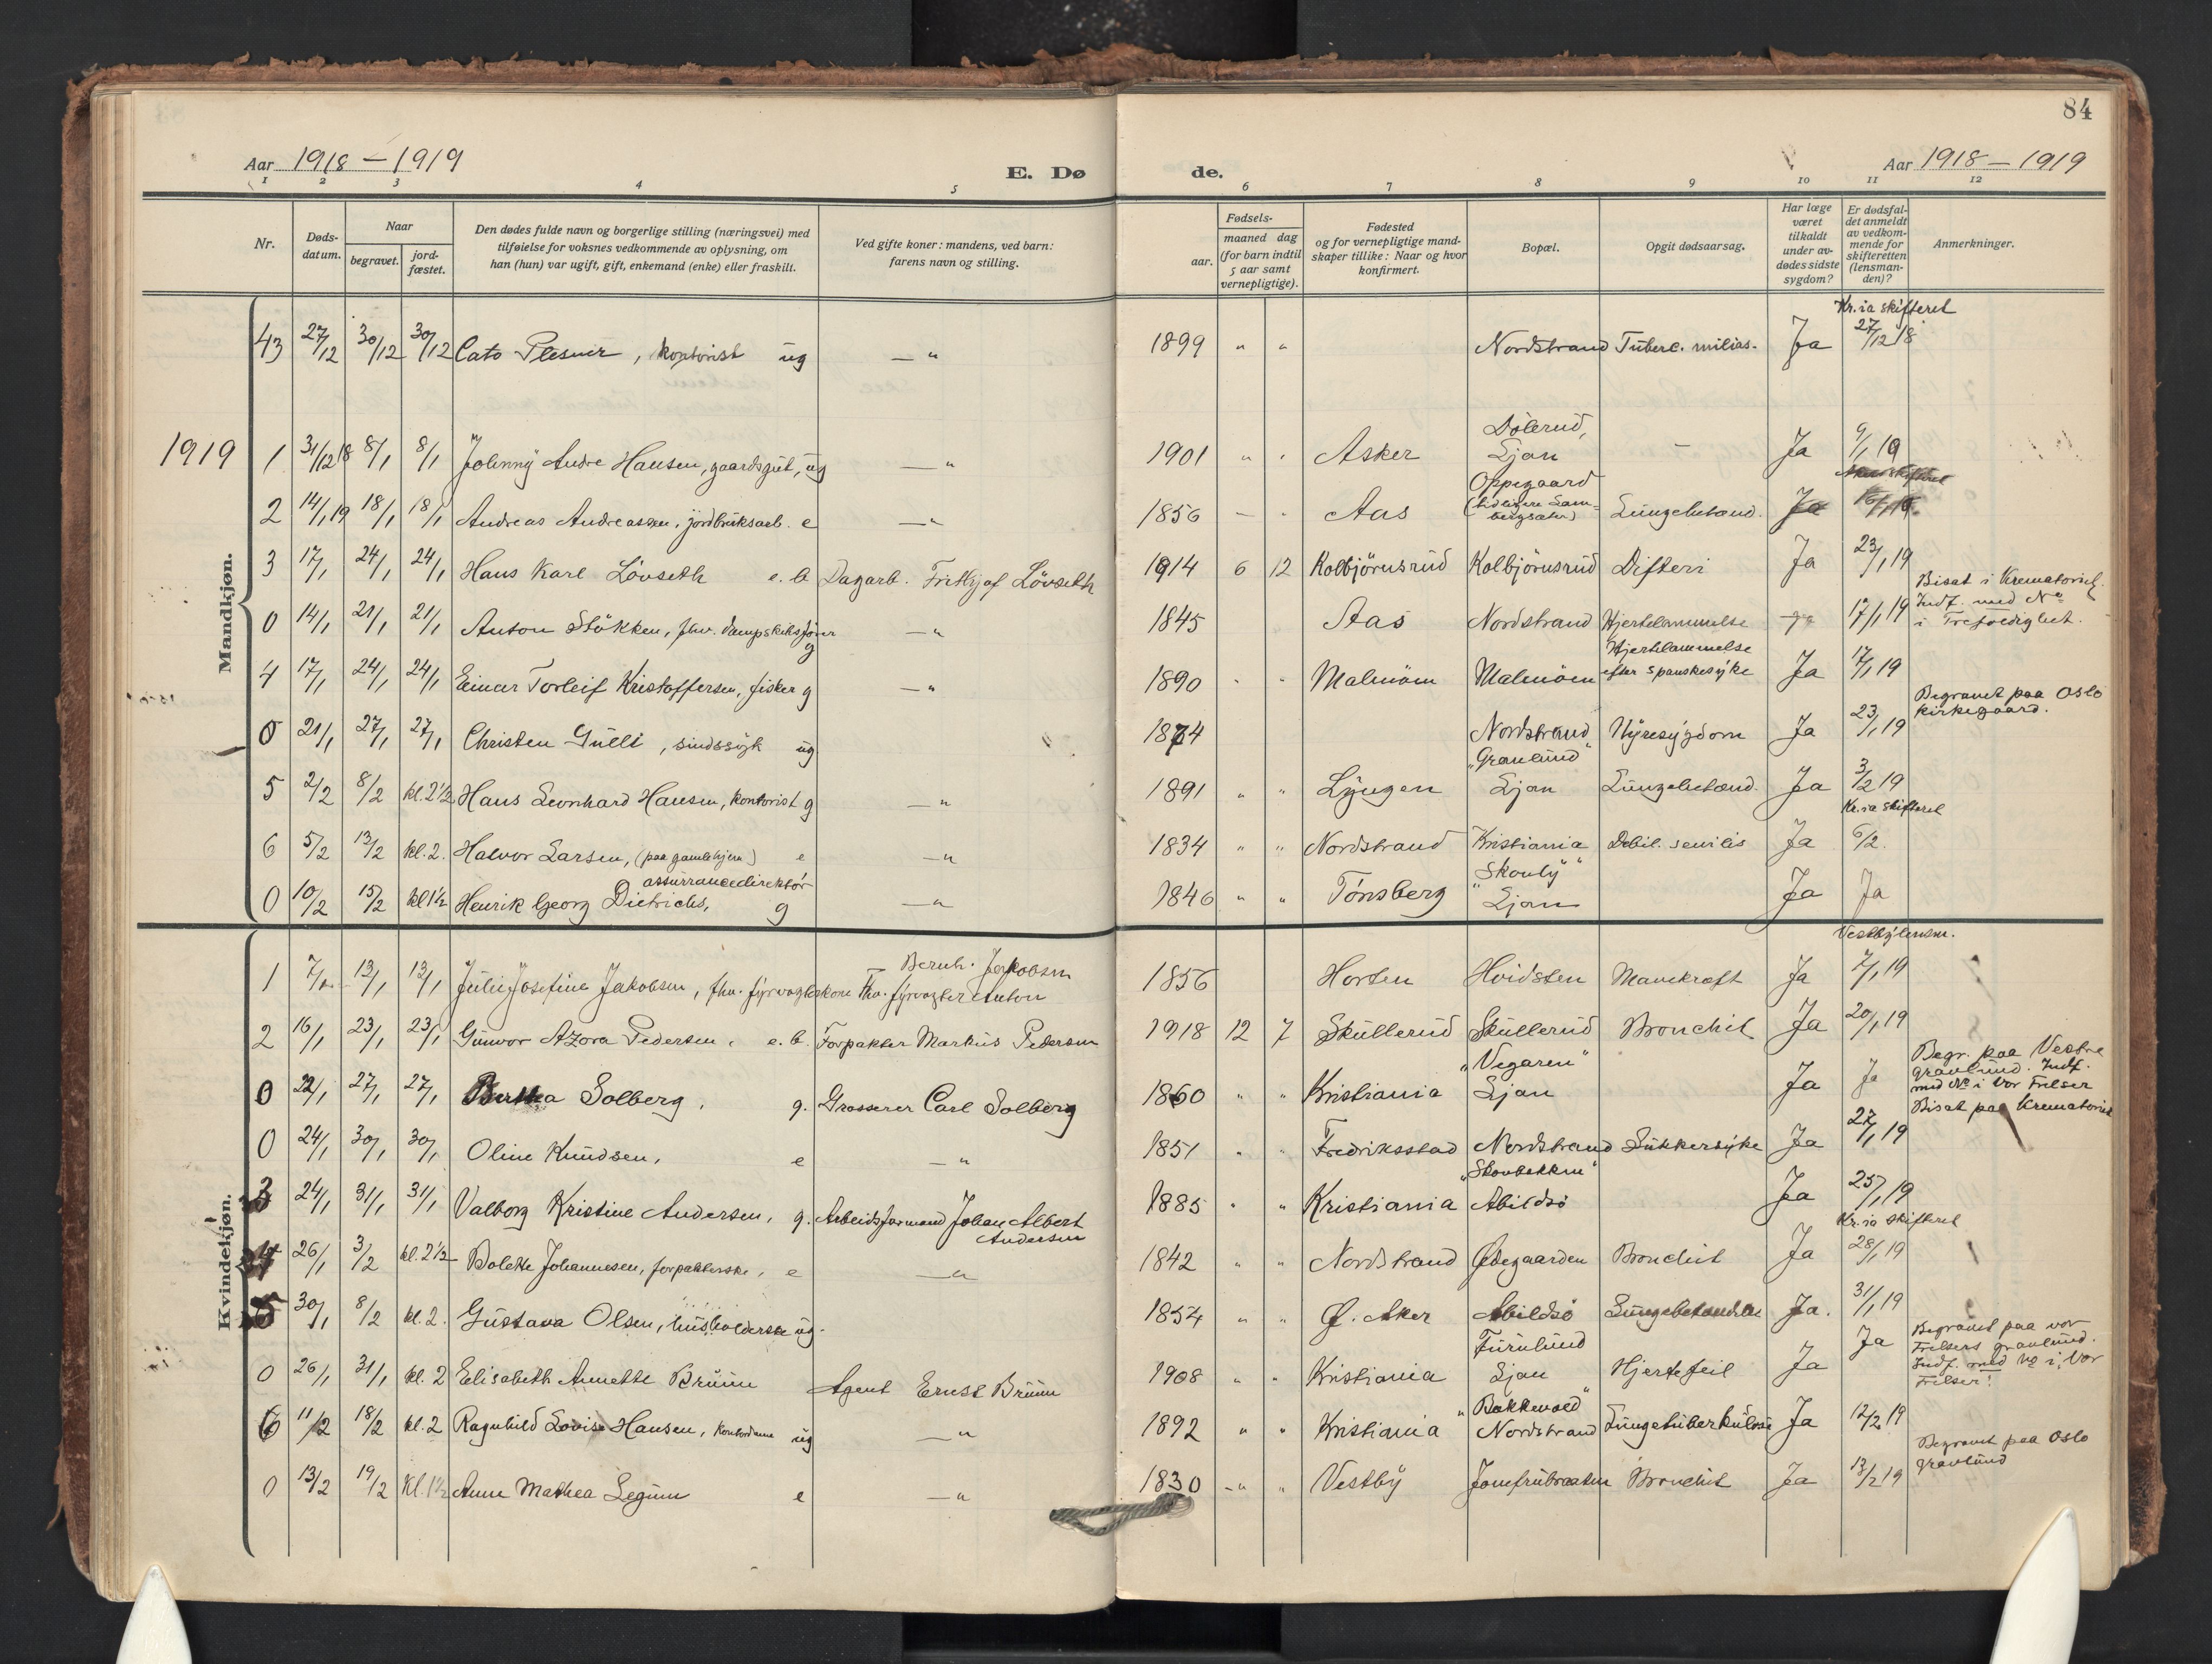 84
Aar 1918 – 1919
E. Dø
de.
Aar 1918 – 1919
1 2 3 4 5 6 7 8 9 10 11 12
Nr.
Døds-
datum.
Naar
begravet.
jord-
fæstet.
Den dødes fulde navn og borgerlige stilling (næringsvei) med
tilføielse for voksnes vedkommende av oplysning, om
han (hun) var ugift, gift, enkemand (enke) eller fraskilt.
Ved gifte koner: mandens, ved barn:
farens navn og stilling.
Fødsels-
aar.
maaned dag
(for barn indtil
5 aar samt
vernepligtige).
Fødested
og for vernepligtige mand-
skaper tillike: Naar og hvor
konfirmert.
Bopæl.
Opgit dødsaarsag.
Har læge
været
tilkaldt
under av-
dødes sidste
sygdom?
Er dødsfal-
det anmeldt
av vedkom-
mende for
skifteretten
(lensman-
den)?
Anmerkninger.
Mandkjøn.
Kr.ia skifteret
43 27/12 30/12 30/12 Cato Plesner, kontorist ug — " 1899 " " Nordstrand Tuberc. milias. Ja 27/12 18
Dølerud,
1919 1 31/12 18 8/1 8/1 Johnny Andre Hansen, gaardsgut, ug — " 1901 " " Asker Ljan – Ja 9/1 19
Oppegaard
2 14/1 19 18/1 18/1 Andreas Andreassen, jordbruksarb. e — " 1856 — " Aas (tidligere Lam-
bergsæter) Lungebetænd. Ja
3 17/1 24/1 24/1 Hans Karl Lövseth e. b Dagarb. Frithjof Lövseth 1914 6 12 Kolbjörnsrud Kolbjörnsrud Difteri Ja 23/1 19
Bisat i Krematoriet.
Indf. med No
i Trefoldighet.
0 14/1 21/1 21/1 Anton Stökken, fhv. dampskibsfører g — " 1845 Aas Nordstrand Hjertelammelse Ja 17/1 19
Hjertelammelse
4 17/1 24/1 24/1 Einar Torleif Kristoffersen, fisker g — " 1890 " " Malmöen Malmöen efter spanskesyke Ja 17/1 19
Begravet paa Oslo
kirkegaard.
0 21/1 27/1 27/1 Christen Gulli, sindssyk ug 1874 Nordstrand Nyresygdom Ja 23/1 19
"Granlund"
5 2/2 8/2 kl. 2½ Hans Leonhard Hansen, kontorist g — " 1891 " " Lyngen Ljan Lungebetænd. Ja 3/2 19
Kr.ia skifteret
6 5/2 13/2 kl. 2. Halvor Larsen, (paa gamlehjem) e — " 1834 " " Nordstrand Kristiania Debil. senilis Ja 6/2.
assurancedirektör "Skouly"
0 10/2 15/2 kl 1½ Henrik Georg Dietrichs, g — " 1846 " " Tönsberg Ljan Ja Ja
Kvindekjøn.
Bernh. Jakobsen Vestbylensm.
1 7/1 13/1 13/1 Julie Josefine Jakobsen, fhv. fyrvogterkone Fhv. fyrvogter Anton 1856 Horten Hvidsten Mavekræft Ja 7/1 19
2 16/1 23/1 23/1 Gunvor Azora Pedersen, e. b. Forpakter Markus Pedersen 1918 12 7 Skullerud Skullerud Bronchit Ja 20/1 19
"Vegaren"
Begr. paa Vestre
gravlund. Indf.
med No i Vor Frelser
0 22/1 27/1 27/1 Bertha Solberg, g. Grosserer Carl Solberg 1860 " " Kristiania Ljan Ja Ja
Bisat paa Krematoriet
0 24/1 30/1 30/1 Oline Knudsen, e — " 1851 " " Fredriksstad Nordstrand Sukkersyke Ja 27/1 19
"Skovbakken"
3 24/1 31/1 31/1 Valborg Kristine Andersen, g. Arbeidsformand Johan Albert
Andersen 1885 " " Kristiania Abildsö Ja 25/1 19
Kr.ia skifteret
4 26/1 3/2 kl. 2½ Bolette Johannesen, forpakterske, e — " 1842 " " Nordstrand Ødegaarden Bronchit Ja 28/1 19
5 30/1 8/2 kl. 2. Gustava Olsen, husholderske ug. 1854 " " Ø. Aker Abildsö Lungebetændelse Ja. 31/1 19
Furulund
Begravet paa vor
Frelsers gravlund.
Indf. med No i Vor
Frelser!
0 26/1 31/1 kl. 2 Elisabeth Annette Bruun Agent Ernst Bruun 1908 " " Kristiania Ljan Hjertefeil Ja Ja
"Bakkevold"
6 11/2 18/2 kl. 2 Ragnhild Lovise Hansen, kontordame ug — " 1892 " " Kristiania Nordstrand Lungetuberkulose Ja 12/2 19
Begravet paa Oslo
gravlund
0 13/2 19/2 kl. 1½ Anne Mathea Legum e — " 1830 — " " Vestby Jomfrubraaten Bronchit Ja 13/2 19